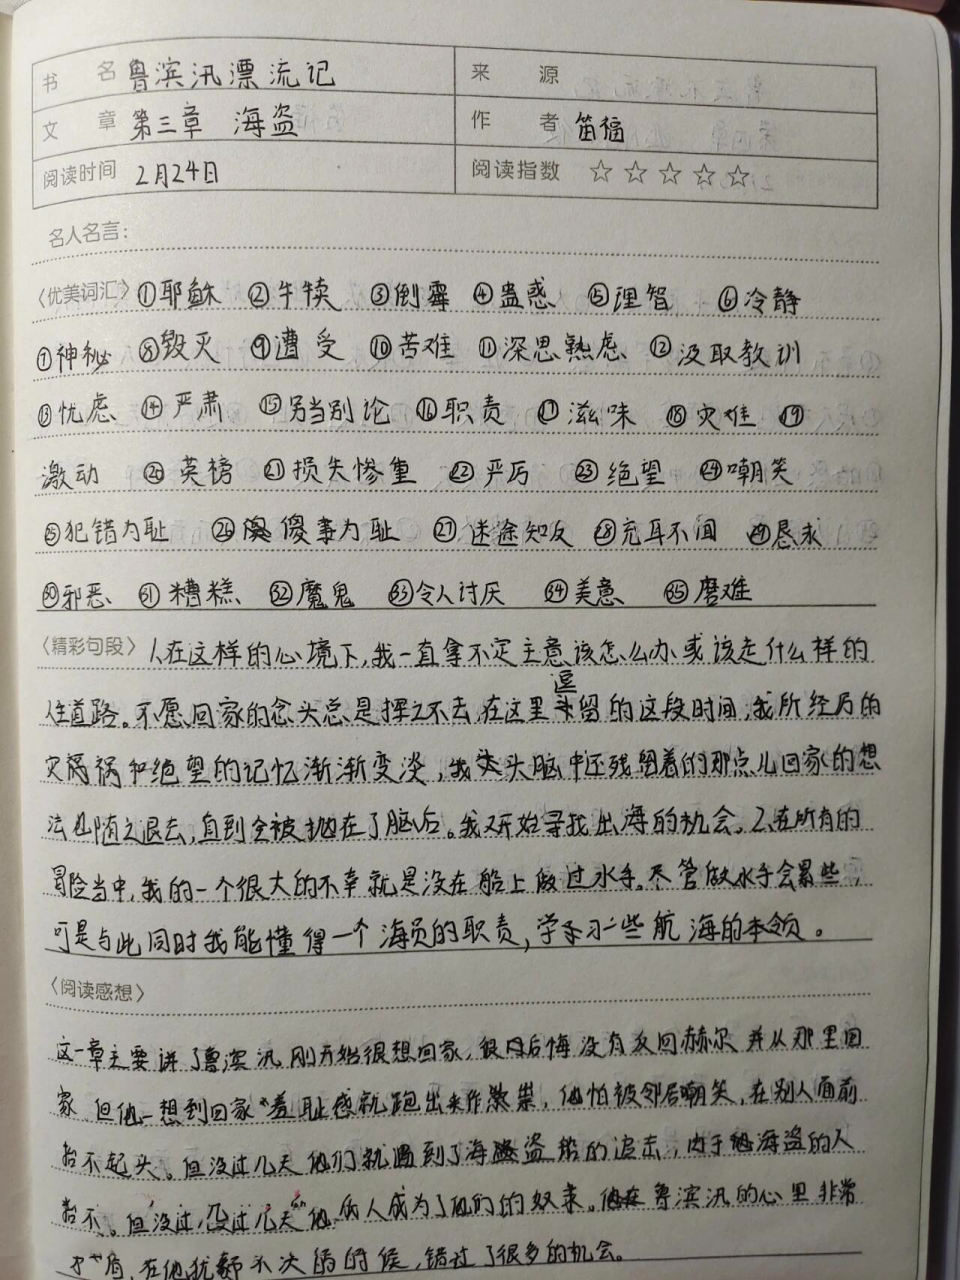 书 名 鲁滨汛漂流记 来 源
文 章 第三章 海盗 作 者 笛福
阅读时间 2月24日 阅读指数 ☆☆☆☆☆
名人名言：
〈优美词汇〉①耶稣 ②牛犊 ③倒霉 ④蛊惑 ⑤理智 ⑥冷静
⑦神秘 ⑧毁灭 ⑨遭受 ⑩苦难 ⑪深思熟虑 ⑫汲取教训
⑬忧虑 ⑭严肃 ⑮另当别论 ⑯职责 ⑰滋味 ⑱灾难 ⑲
激动 ⑳英镑 ㉑损失惨重 ㉒严厉 ㉓绝望 ㉔嘲笑
㉕犯错为耻 ㉖傻事为耻 ㉗迷途知反 ㉘充耳不闻 ㉙恳求
㉚邪恶 ㉛糟糕 ㉜魔鬼 ㉝令人讨厌 ㉞美意 ㉟磨难
〈精彩句段〉1.在这样的心境下,我一直拿不定主意该怎么办或该走什么样的
道路。不愿回家的念头总是挥之不去,在这里逗留的这段时间,我所经历的
灾祸和绝望的记忆渐渐变淡,我头脑中还残留着的那点儿回家的想
法也随之退去,直到全被抛在了脑后。我又开始寻找出海的机会。2.在所有的
冒险当中,我的一个很大的不幸就是没在船上做过水手。尽管做水手会累些,
可是与此同时我能懂得一个海员的职责,学习一些航海的本领。
〈阅读感想〉
这一章主要讲了鲁滨汛刚开始很想回家,很后悔没有友回赫尔并从那里回
家 但他一想到回家羞耻感就跑出来作祟,他怕被邻居嘲笑,在别人面前
抬不起头。但没过几天他们就遇到了海盗船的追击,由于海盗的人
抬不。但没过,没过几天他 成为了他们的奴隶。鲁滨汛的心里非常
后,在他犹豫不决的时候,错过了很多的机会。